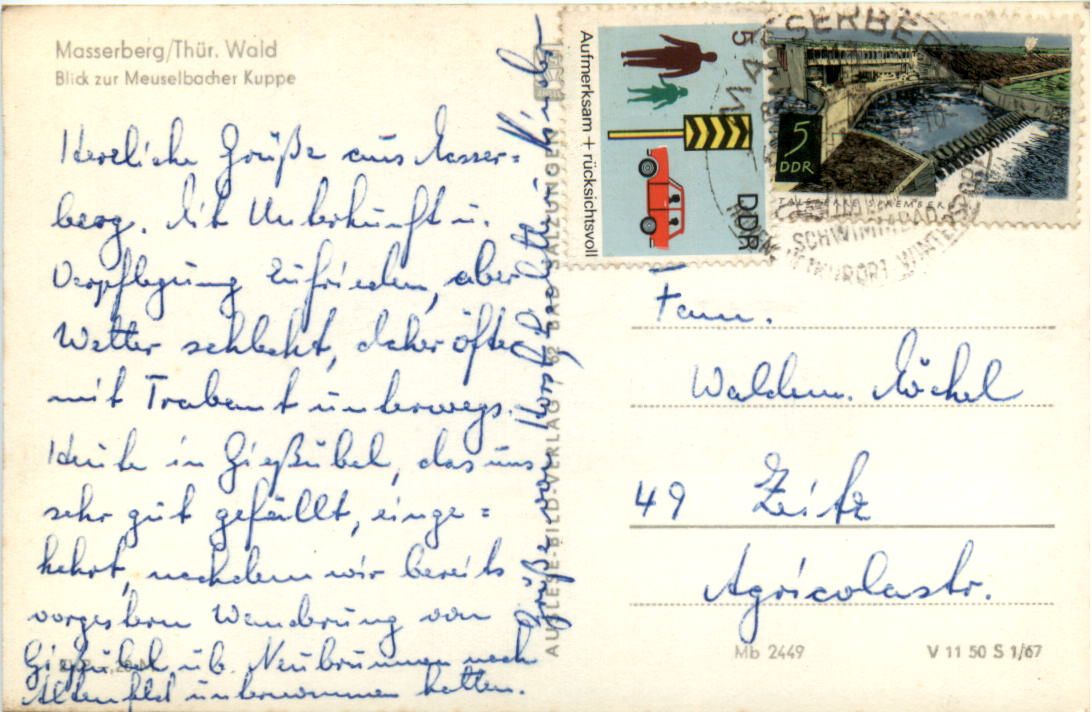 Masserberg/Thür. Wald
Blick zur Meuselbacher Kuppe
Herzliche Grüße aus Masser=
berg. Mit Unterkunft u.
Verpflegung zufrieden, aber
Wetter schlecht, daher öfter
mit Trabant unterwegs.
Heute in Gießübel, das uns
sehr gut gefällt, einge=
kehrt, nachdem wir bereits
vorgestern Wanderung von
Gießübel üb. Neubrunnen nach
Altenfeld unternommen hatten.
Grüße von
AUSLESE-BILD-VERLAG / 62 BAD SALZUNGEN
Aufmerksam + rücksichtsvoll
DDR
5
5
DDR
TALSPERRE SPREMBERG
MASSERBERG
SCHWIMMBAD
HÖHENLUFTKURORT WINTERSPORT
Fam.
Waldem. Möckel
49 Zeitz
Agricolastr.
Mb 2449
V 11 50 S 1/67